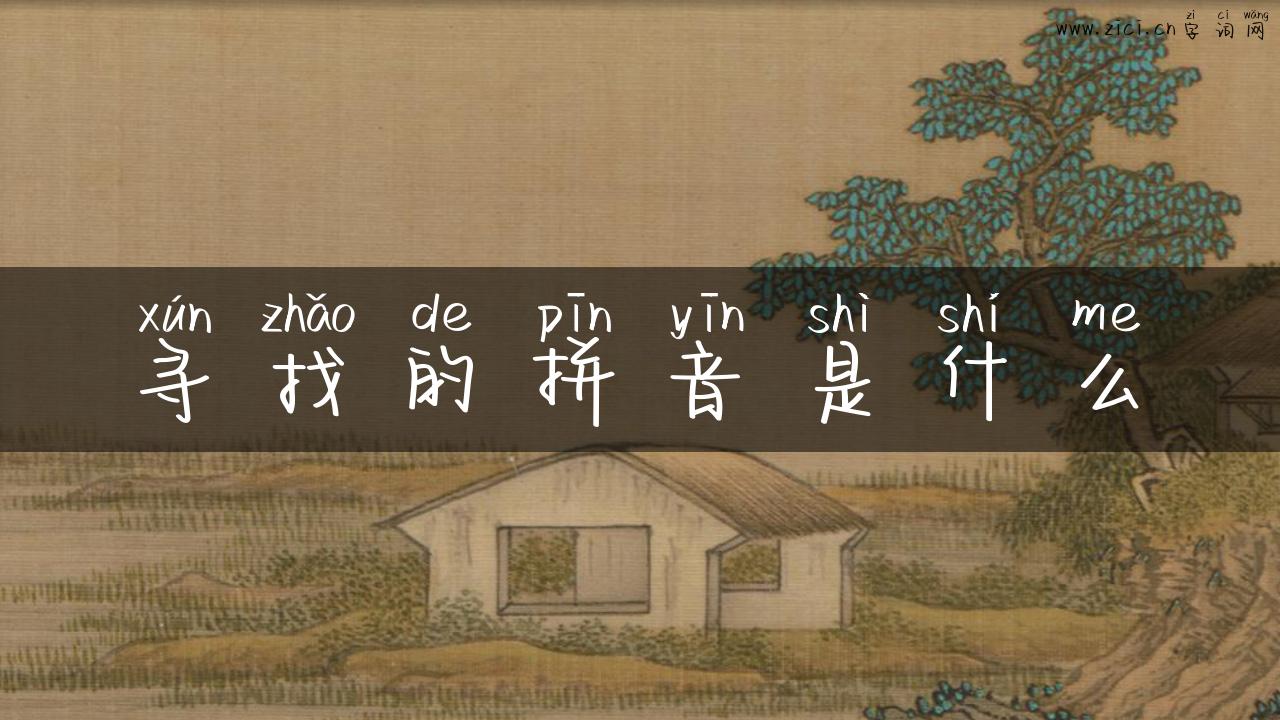 zì cí wǎng
www.zici.cn 字 词 网
xún zhǎo de pīn yīn shì shí me
寻 找 的 拼 音 是 什 么